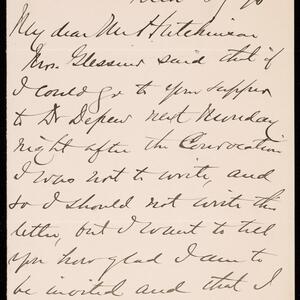 My dear Mr Hutchinson
Mrs. Glessner said that if
I could go to your supper
to Dr Depew next Monday
night after the Convocation
I was not to write, and
so I should not write this
letter, but I want to tell
you how glad I am to
be invited and that I